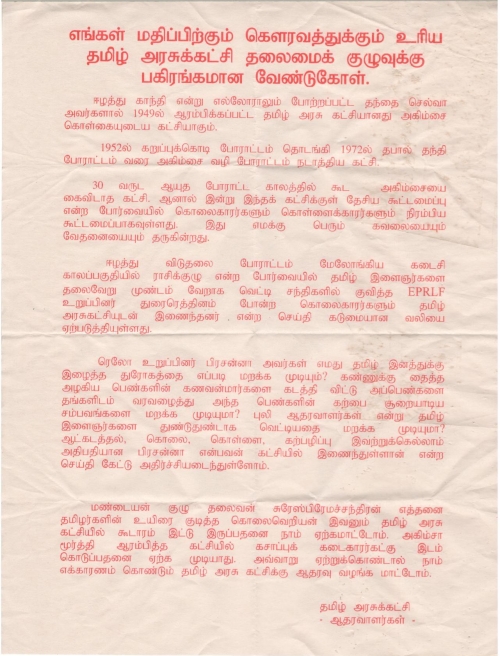 எங்கள் மதிப்பிற்கும் கௌரவத்துக்கும் உரிய
தமிழ் அரசுக்கட்சி தலைமைக் குழுவுக்கு
பகிரங்கமான வேண்டுகோள்.
ஈழத்து காந்தி என்று எல்லோராலும் போற்றப்பட்ட தந்தை செல்வா
அவர்களால் 1949ல் ஆரம்பிக்கப்பட்ட தமிழ் அரசு கட்சியானது அகிம்சை
கொள்கையுடைய கட்சியாகும்.
1952ல் கறுப்புக்கொடி போராட்டம் தொடங்கி 1972ல் தபால் தந்தி
போராட்டம் வரை அகிம்சை வழி போராட்டம் நடாத்திய கட்சி.
30 வருட ஆயுத போராட்ட காலத்தில் கூட அகிம்சையை
கைவிடாத கட்சி. ஆனால் இன்று இந்தக் கட்சிக்குள் தேசிய கூட்டமைப்பு
என்ற போர்வையில் கொலைகாரர்களும் கொள்ளைக்காரர்களும் நிரம்பிய
கூட்டமைப்பாகவுள்ளது. இது எமக்கு பெரும் கவலையையும்
வேதனையையும் தருகின்றது.
ஈழத்து விடுதலை போராட்டம் மேலோங்கிய கடைசி
காலப்பகுதியில் ராசிக்குழு என்ற போர்வையில் தமிழ் இளைஞர்களை
தலைவேறு முண்டம் வேறாக வெட்டி சந்திகளில் குவித்த EPRLF
உறுப்பினர் துரைரெத்தினம் போன்ற கொலைகாரர்களும் தமிழ்
அரசுகட்சியுடன் இணைந்தனர் என்ற செய்தி கடுமையான வலியை
ஏற்படுத்தியுள்ளது.
ரெலோ உறுப்பினர் பிரசன்னா அவர்கள் எமது தமிழ் இனத்துக்கு
இழைத்த துரோகத்தை எப்படி மறக்க முடியும்? கண்ணுக்கு தைத்த
அழகிய பெண்களின் கணவன்மார்களை கடத்தி விட்டு அப்பெண்களை
தங்களிடம் வரவழைத்து அந்த பெண்களின் கற்பை சூறையாடிய
சம்பவங்களை மறக்க முடியுமா? புலி ஆதரவாளர்கள் என்று தமிழ்
இளைஞர்களை துண்டுதுண்டாக வெட்டியதை மறக்க முடியுமா?
ஆட்கடத்தல், கொலை, கொள்ளை, கற்பழிப்பு இவற்றுக்கெல்லாம்
அதிபதியான பிரசன்னா என்பவன் கட்சியில் இணைந்துள்ளான் என்ற
செய்தி கேட்டு அதிர்ச்சியடைந்துள்ளோம்.
மண்டையன் குழு தலைவன் சுரேஸ்பிரேமச்சந்திரன் எத்தனை
தமிழர்களின் உயிரை குடித்த கொலைவெறியன் இவனும் தமிழ் அரசு
கட்சியில் கூடாரம் இட்டு இருப்பதனை நாம் ஏற்கமாட்டோம். அகிம்சா
மூர்த்தி ஆரம்பித்த கட்சியில் கசாப்புக் கடைகாரர்கட்கு இடம்
கொடுப்பதனை ஏற்க முடியாது. அவ்வாறு ஏற்றுக்கொண்டால் நாம்
எக்காரணம் கொண்டும் தமிழ் அரசு கட்சிக்கு ஆதரவு வழங்க மாட்டோம்.
தமிழ் அரசுக்கட்சி
- ஆதரவாளர்கள் -